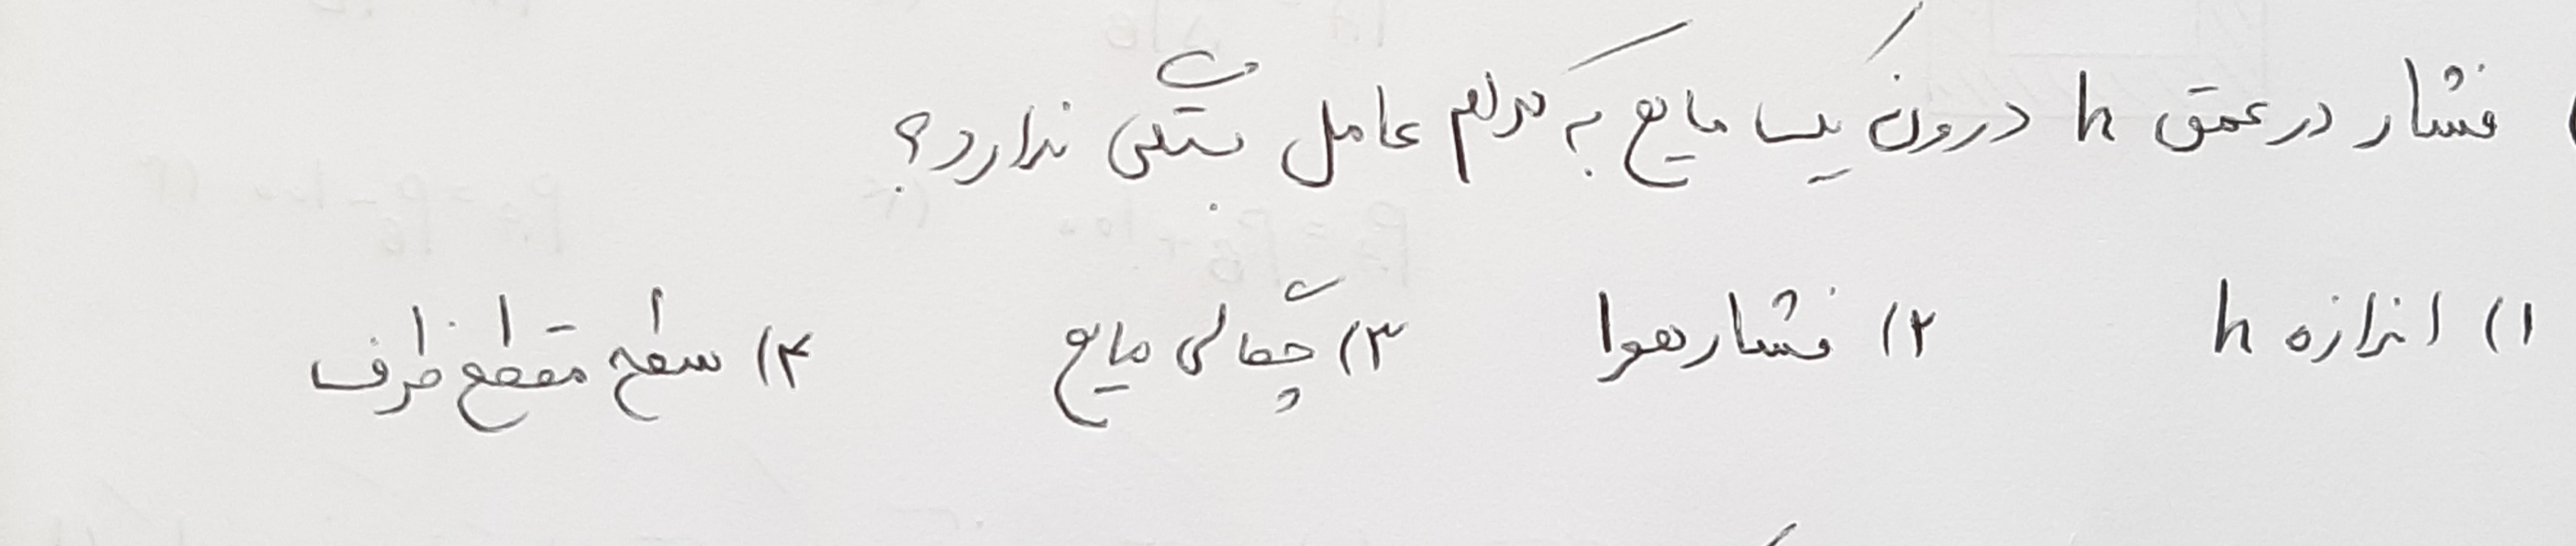 فشار در عمق h درون یک مایع به کدام عامل بستگی ندارد؟
۱) اندازه h ۲) فشار هوا ۳) چگالی مایع ۴) سطح مقطع ظرف